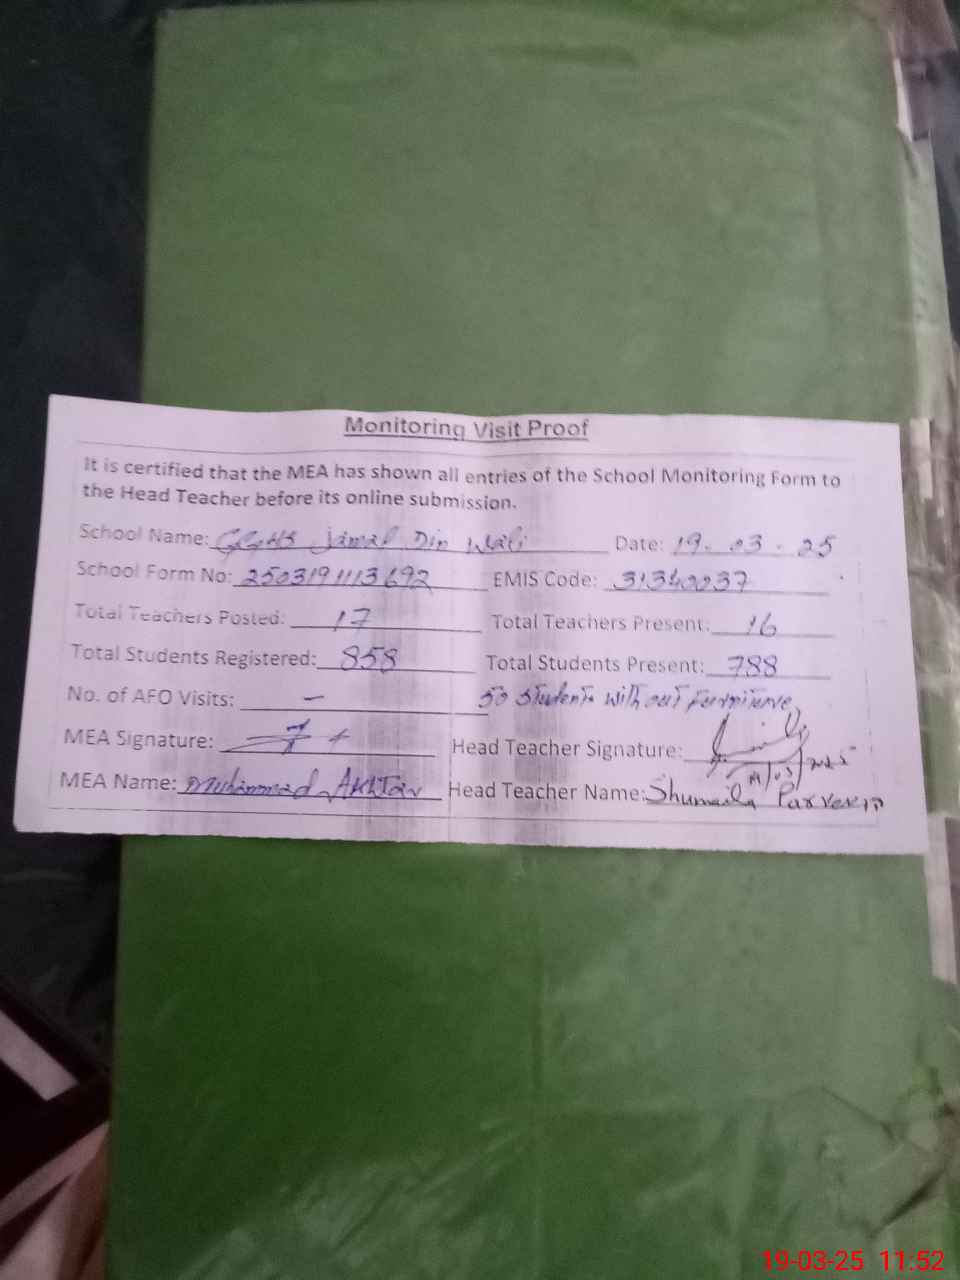 Monitoring Visit Proof
It is certified that the MEA has shown all entries of the School Monitoring Form to
the Head Teacher before its online submission.
School Name: GGHS Jamal Din Wali Date: 19.03.25
School Form No: 2503191113692 EMIS Code: 31340037
Total Teachers Posted: 17 Total Teachers Present: 16
Total Students Registered: 858 Total Students Present: 788
No. of AFO Visits: - 50 students without furniture
MEA Signature: Head Teacher Signature:
MEA Name: Muhammad Akhtar Head Teacher Name: Shumaila Parveen
19-03-25 11:52